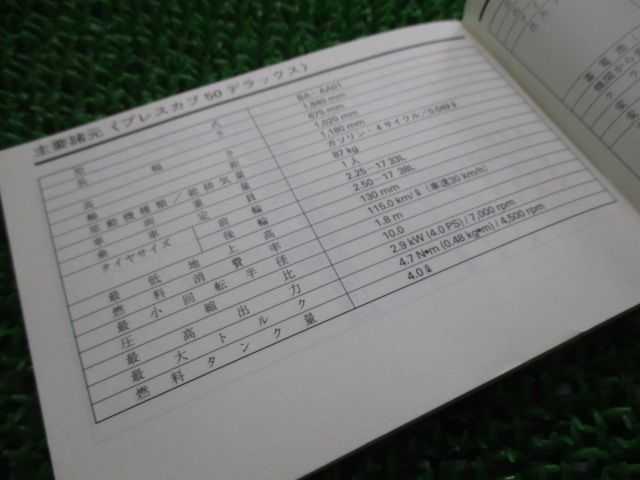 主要諸元《プレスカブ50デラックス》
型 式 BA-AA01
長 さ 1,840 mm
幅 675 mm
高 さ 1,020 mm
軸 1,180 mm
原動機種類/総排気量 ガソリン・4サイクル/0.049ℓ
車両重量 87 kg
乗車定員 1人
タイヤサイズ 前輪 2.25-17 33L
後輪 2.50-17 38L
最低地上高 130 mm
燃料消費率 115.0 km/ℓ (車速30 km/h)
最小回転半径 1.8 m
圧縮比 10.0
最高出力 2.9 kW (4.0 PS) / 7,000 rpm
最大トルク 4.7 N•m (0.48 kg•m) / 4,500 rpm
燃料タンク量 4.0ℓ